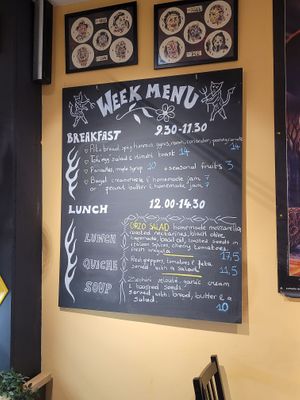 WEEK MENU
BREAKFAST 9.30-11.30
Pita bread, spicy hummus, gyros, mint, coriander, 14
salad & toast 14
Pancakes, maple syrup 10 + seasonal fruits 3
Bagel, & homemade jam 7
or peanut butter & homemade jam 7
LUNCH 12.00-14.30
LUNCH
ORZO SALAD homemade mozzarella,
roasted nectarines, black olive,
homemade basil oil, roasted seeds in
spices, cherry tomatoes,
fresh 17,5
QUICHE
Red peppers, tomatoes & feta
served with a salad 11,5
SOUP
Zucchini velouté, garlic cream
& toasted seeds
served with bread, butter & a
salad 10